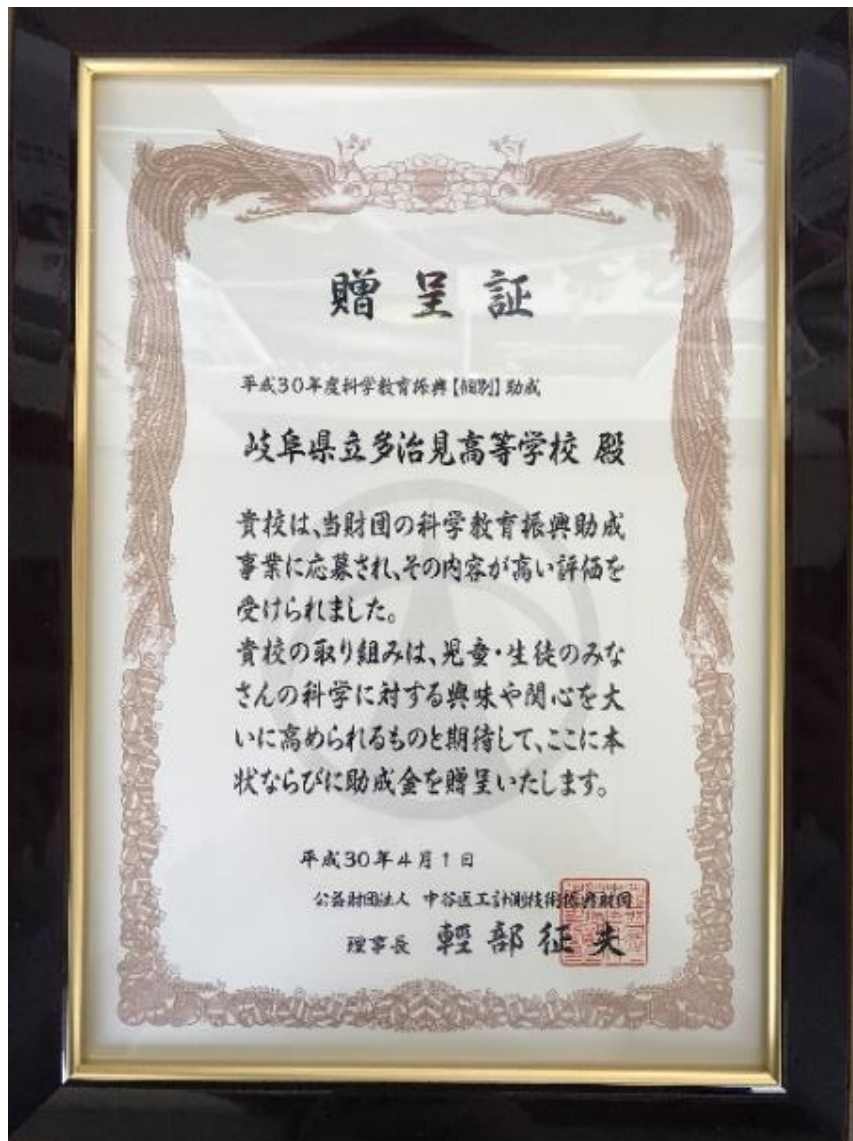 贈呈証
平成30年度科学教育振興【個別】助成
岐阜県立多治見高等学校 殿
貴校は、当財団の科学教育振興助成
事業に応募され、その内容が高い評価を
受けられました。
貴校の取り組みは、児童・生徒のみな
さんの科学に対する興味や関心を大
いに高められるものと期待して、ここに本
状ならびに助成金を贈呈いたします。
平成30年4月1日
公益財団法人 中谷医工計測技術振興財団
理事長 軽部征夫